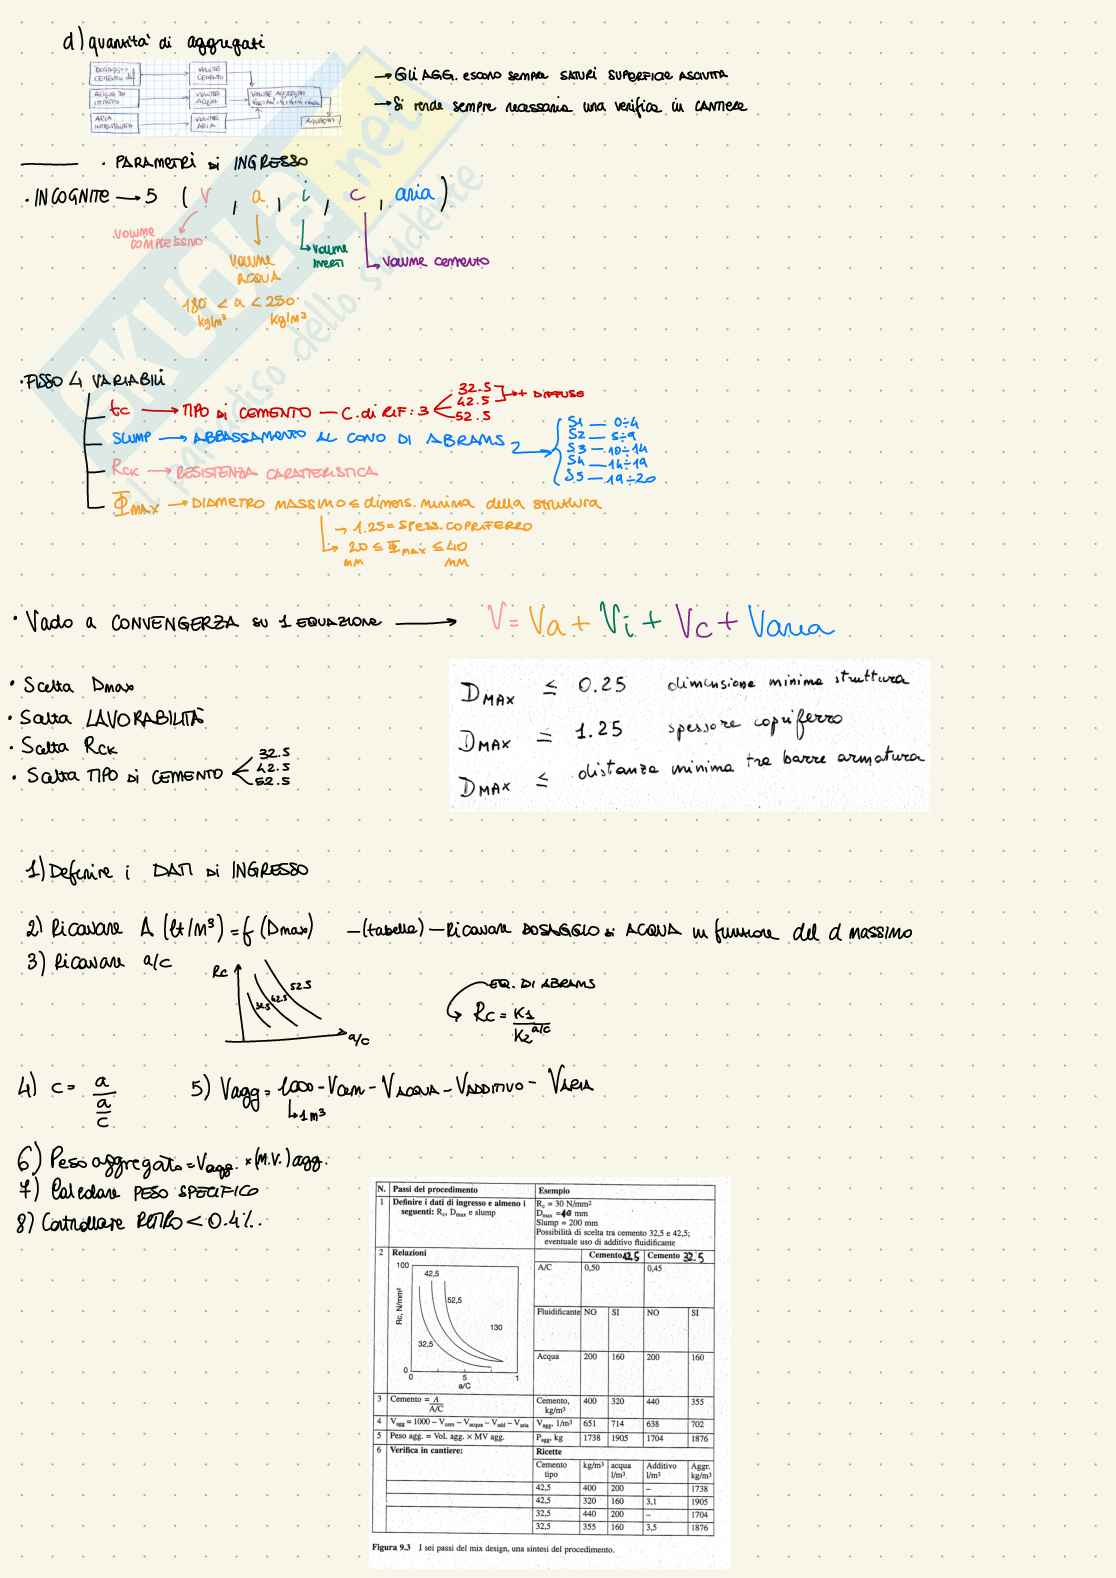 d) quantità di aggregati
DOSAGGIO CEMENTO
VOLUME CEMENTO
ACQUA DI IMPASTO
VOLUME ACQUA
VOLUME AGGREGATI
ARIA
VOLUME ARIA
→ Gli AGG. escono sempre SATURI SUPERFICIE ASCIUTTA
→ Si rende sempre necessaria una verifica in CANTIERE
· PARAMETRI DI INGRESSO
· INCOGNITE → 5 ( V , a , i , c , aria )
VOLUME COMPLESSIVO
VOLUME ACQUA
VOLUME INERTI
VOLUME CEMENTO
180 < a < 250
kg/m³ kg/m³
· FISSO 4 VARIABILI
tc → TIPO DI CEMENTO — C. di RIF: 3
32.5
42.5
52.5
+ DIFFUSO
SLUMP → ABBASSAMENTO AL CONO DI ABRAMS
S1 — 0÷4
S2 — 5÷9
S3 — 10÷14
S4 — 14÷19
S5 — 19÷20
RCK → RESISTENZA CARATTERISTICA
ΦMAX → DIAMETRO MASSIMO ≤ dimens. minima della struttura
→ 1.25 = SPESS. COPRIFERRO
→ 20 ≤ ΦMAX ≤ 40
MM MM
· Vado a CONVENGERZA SU 1 EQUAZIONE → V = Va + Vi + Vc + Varia
· Scelta Dmax
· Scelta LAVORABILITÀ
· Scelta RCK
· Scelta TIPO DI CEMENTO
32.5
42.5
52.5
DMAX ≤ 0.25 dimensione minima struttura
DMAX ≤ 1.25 spessore copriferro
DMAX ≤ distanza minima tra barre armatura
1) Definire i DATI DI INGRESSO
2) Ricavare A (lt/m³) = f (Dmax) — (tabella) — Ricavare DOSAGGIO DI ACQUA in funzione del d MASSIMO
3) Ricavare a/c
Rc
32.5 42.5 52.5
a/c
EQ. DI ABRAMS
Rc = K1 / K2^a/c
4) c = a / (a/c)
5) Vagg = 1000 - Vcem - VACQUA - VADDITIVO - VARIA
↳ 1 m³
6) Peso aggregato = Vagg. × (M.V.) agg.
7) Calcolare PESO SPECIFICO
8) Controllare RITIRO < 0.4%.
N. Passi del procedimento Esempio
1 Definire i dati di ingresso e almeno i seguenti: Rc, Dmax e slump
Rc = 30 N/mm²
Dmax = 40 mm
Slump = 200 mm
Possibilità di scelta tra cemento 32,5 e 42,5;
eventuale uso di additivo fluidificante
2 Relazioni
100
42,5
52,5
130
32,5
Rc, N/mm²
0
0 5 1
a/C
Cemento 42.5 Cemento 32.5
A/C 0,50 0,45
Fluidificante NO SI NO SI
Acqua 200 160 200 160
3 Cemento = A / A/C Cemento, kg/m³ 400 320 440 355
4 Vagg = 1000 – Vcem – Vacqua – Vadd – Varia Vagg, l/m³ 651 714 638 702
5 Peso agg. = Vol. agg. × MV agg. Pagg, kg 1738 1905 1704 1876
6 Verifica in cantiere: Ricette
Cemento tipo kg/m³ acqua l/m³ Additivo l/m³ Aggr. kg/m³
42,5 400 200 – 1738
42,5 320 160 3,1 1905
32,5 440 200 – 1704
32,5 355 160 3,5 1876
Figura 9.3 I sei passi del mix design, una sintesi del procedimento.
SKUOLA.net
il paradiso dello studente